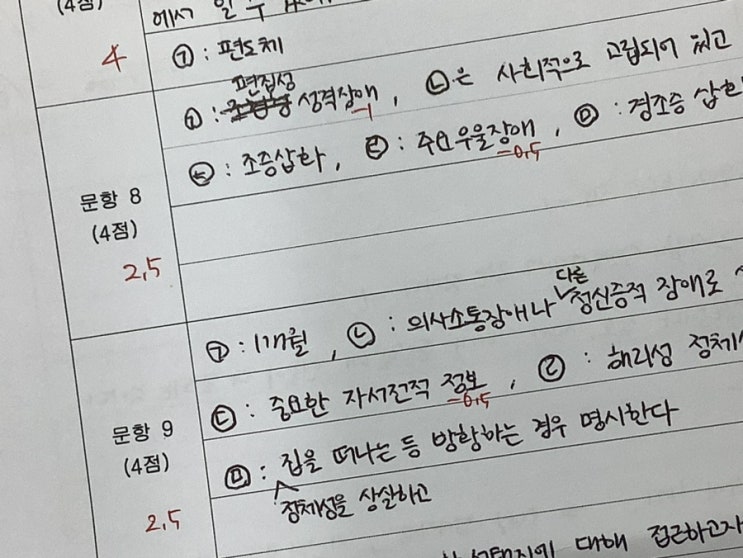 (4점)
에서 일
4
㉠ : 편도체
편집성
㉠ : 성격장애, ㉡은 사회적으로 고립되어 있고
-1
㉢ : 조증삽화, ㉣ : 주요우울장애, ㉤ : 경조증 삽화
-0.5
문항 8
(4점)
2,5
다른
㉠ : 1개월, ㉡ : 의사소통장애나 정신증적 장애로
㉢ : 중요한 자서전적 정보, ㉣ : 해리성 정체
-0.5
문항 9
(4점)
㉤ : 집을 떠나는 등 방황하는 경우 명시한다
정체성을 상실하고
2,5
대해 접근하고자